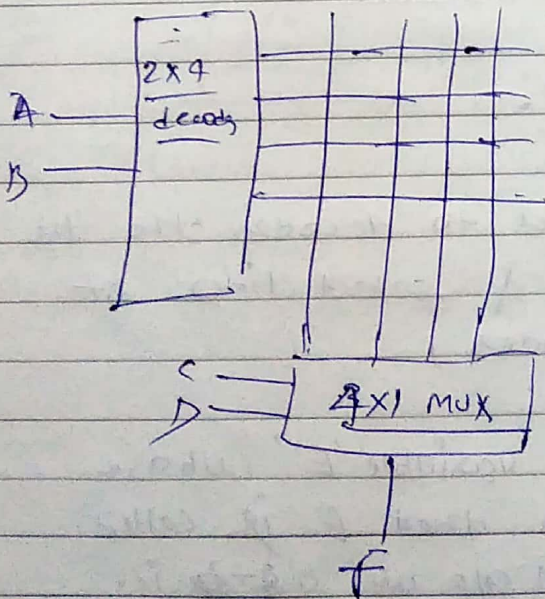 2x4
decodg
A
B
C
D
4x1 MUX
f